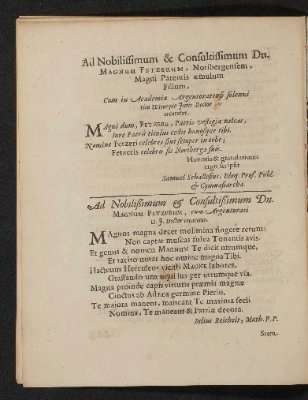 Ad Nobilissimum & Consultissimum Dn.
MAGNUM FETZERUM, Noribergensem,
Magni Parentis æmulum
Filium,
Cum in Academia Argentoratensi solenni
ritu Utriusque Juris Doctor
crearetur.
MAgni dum, FETZERE, Patris vestigia calcas,
Jure Patris titulos
Nomine Fetzeri celebres sint semper in orbe;
Fetzeris celebris sis Noriberga suis.
Honoris & gratulationis
ergò scripsit
Samuel Schallesius, Eloq. Prof. Publ.
& Gymnasiarcha.
Ad Nobilissimum & Consultissimum Dn.
MAGNUM FETZERUM, cum Argentorati
U. J. Doctor crearetur.
MAgnos magna decet molimina fingere rerum:
Non captat muscas fulva Tonantis avis.
Et genus & nomen MAGNUM Te dicit utrumque,
Et tacito notat hoc omine magna Tibi.
Hactenus Herculeos vicisti MAGNE labores,
Grassando usque per utrumque via.
Magna proinde capis virtutis præmia magnæ
Cinctus ab Astræa germine Pierio.
Te majora manent, maneant Te maxima secli
Nomina, Te maneant & Patriæ decora.
Julius Reichelt, Math. P. P.
Stem-